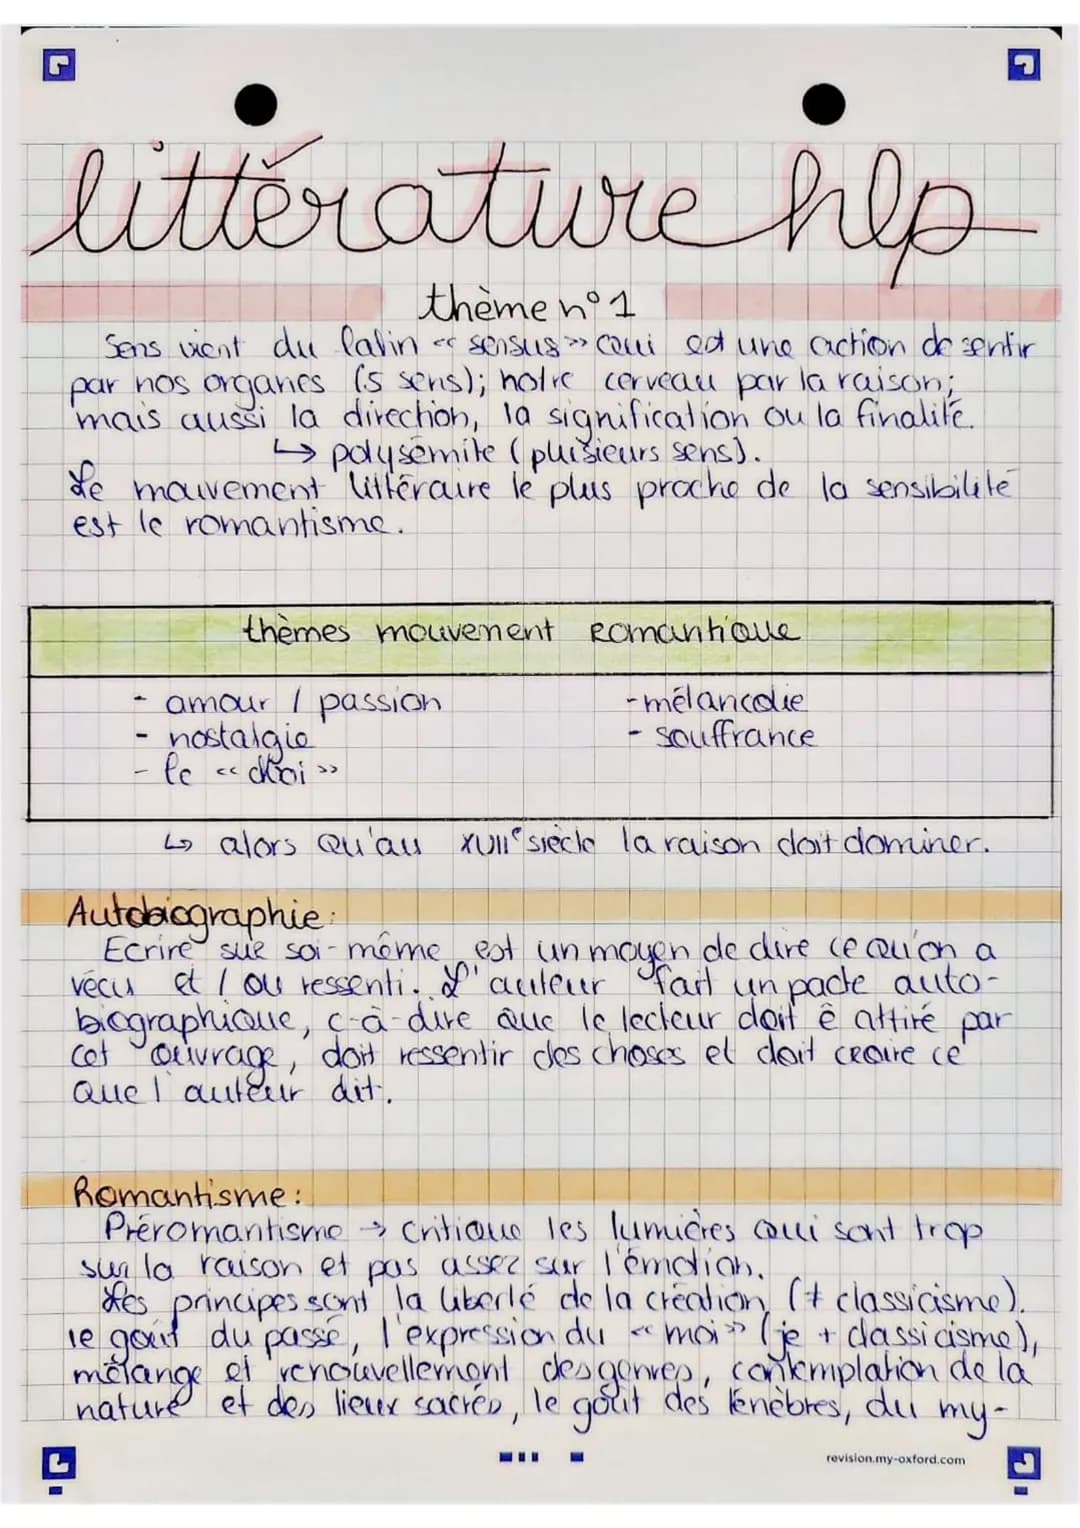 littérature hlp
thème n° 1
Sens vient du latin « sensus » qui est une action de sentir
par nos organes (5 sens); notre cerveau par la raison;
mais aussi la direction, la signification ou la finalité.
↳ polysémite (pluisieurs sens).
Le mouvement littéraire le plus proche de la sensibilité
est le romantisme.
thèmes mouvement Romantique
- amour / passion
- nostalgie
- le «
»
- mélancolie
- souffrance
↳ alors qu'au XVIIe siècle la raison doit dominer.
Autobiographie:
Ecrire sur soi-même est un moyen de dire ce qu'on a
vécu et / ou ressenti. L'auteur fait un pacte auto-
biographique, c-à-dire que le lecteur doit ê attiré par
cet ouvrage, doit ressentir des choses et doit croire ce
que l'auteur dit.
Romantisme:
Préromantisme → critique les lumières qui sont trop
sur la raison et pas assez sur l'émotion.
Les principes sont la liberté de la création (≠ classicisme).
le goût du passé, l'expression du « moi » (je + classicisme),
mélange et renouvellement des genres, contemplation de la
nature et des lieux sacrés, le goût des ténèbres, du my-
revision.my-oxford.com